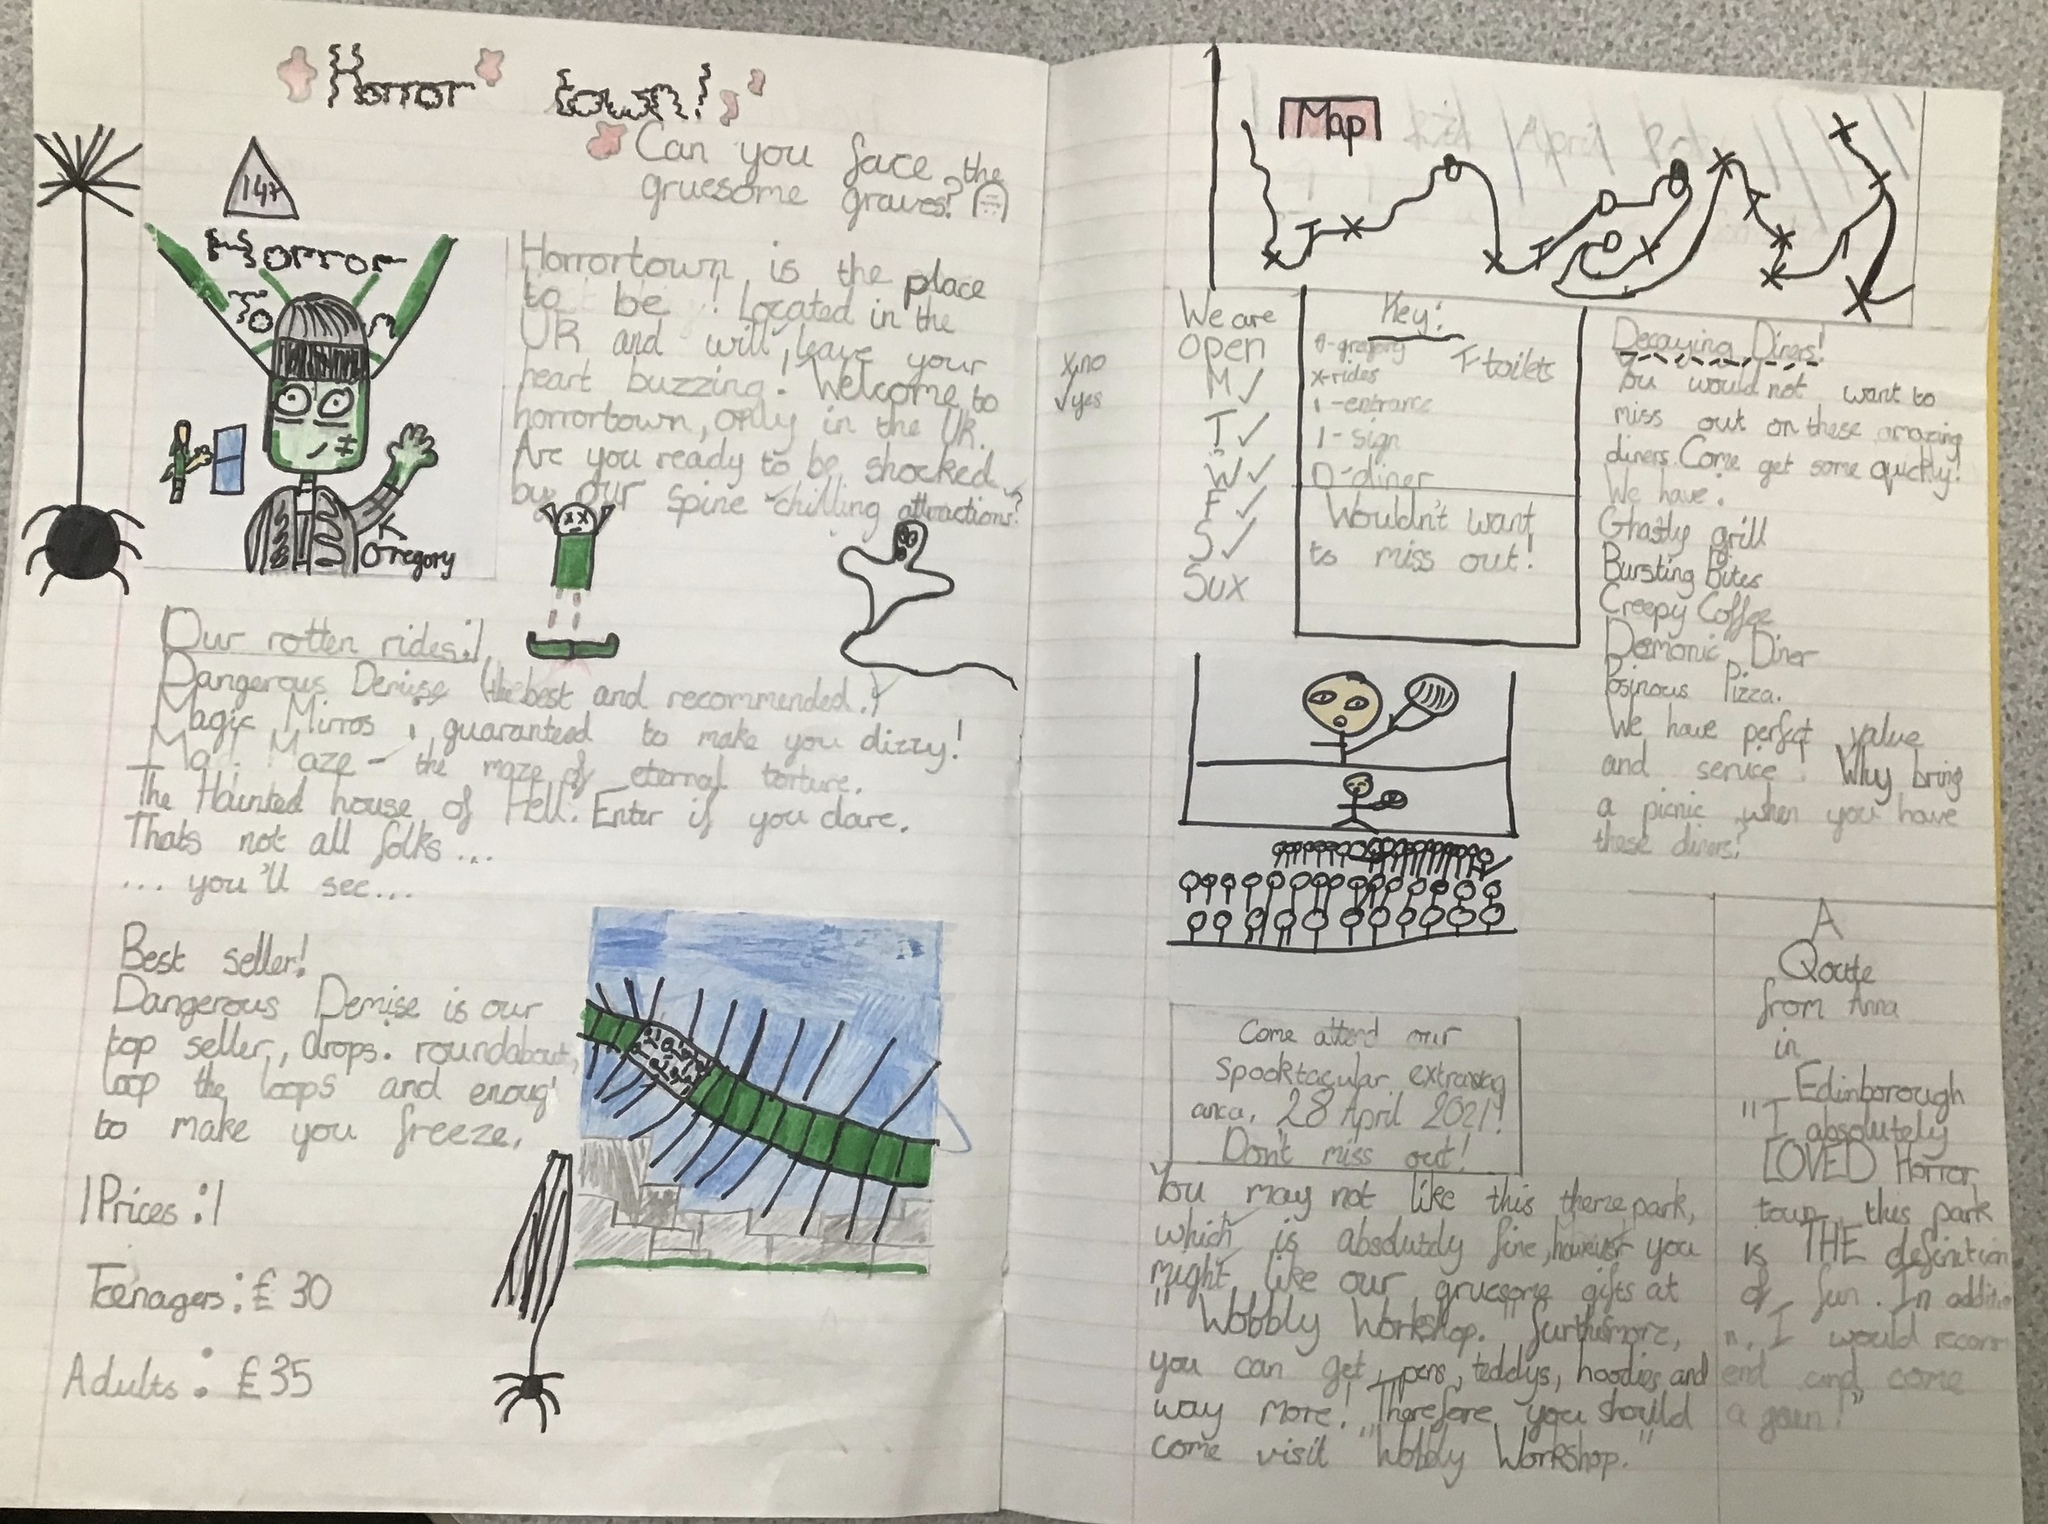 Horror town!
Can you face the
gruesome graves?
147
Horror
To
n
Gregory
Horrortown is the place
to be! Located in the
UK and will, leave your
heart buzzing! Welcome to
horrortown, only in the Uk.
Are you ready to be shocked
by our spine chilling attractions?
Our rotten rides:
Dangerous Demise (the best and recommended.)
Magic Mirros, guaranteed to make you dizzy!
Mad Maze - the maze of eternal torture.
The Haunted house of Hell. Enter if you dare.
Thats not all folks...
... you'll see...
Best seller!
Dangerous Demise is our
top seller, drops. roundabout,
loop the loops and enoug
to make you freeze.
Prices:
Teenagers: £30
Adults: £35
Map
x no
✓yes
We are
open
M✓
T✓
W✓
F✓
S✓
Sux
Key:
G-gregory
T-toilets
x-rides
1-entrance
1-sign
D-diner
Wouldn't want
to miss out!
Decaying Diners!
You would not want to
miss out on these amazing
diners. Come get some quickly!
We have:
Ghastly grill
Bursting Bites
Creepy Coffee
Demonic Diner
Posinous Pizza.
We have perfect value
and service! Why bring
a picnic when you have
these diners?
Come attend our
Spooktacular extravag
anca, 28 April 2021!
Don't miss out!
You may not like this theme park,
which is absolutely fine, however you
might like our gruesome gifts at
"Wobbly Workshop." furthermore,
you can get, pens, teddys, hoodies and
way more! Therefore you should
come visit "Wobbly Workshop."
A
Qoute
from Anna
in
Edinborough
"I absolutely
LOVED Horror
town, this park
is THE definition
of fun. In additio
n, I would recom
end and come
a gain!"